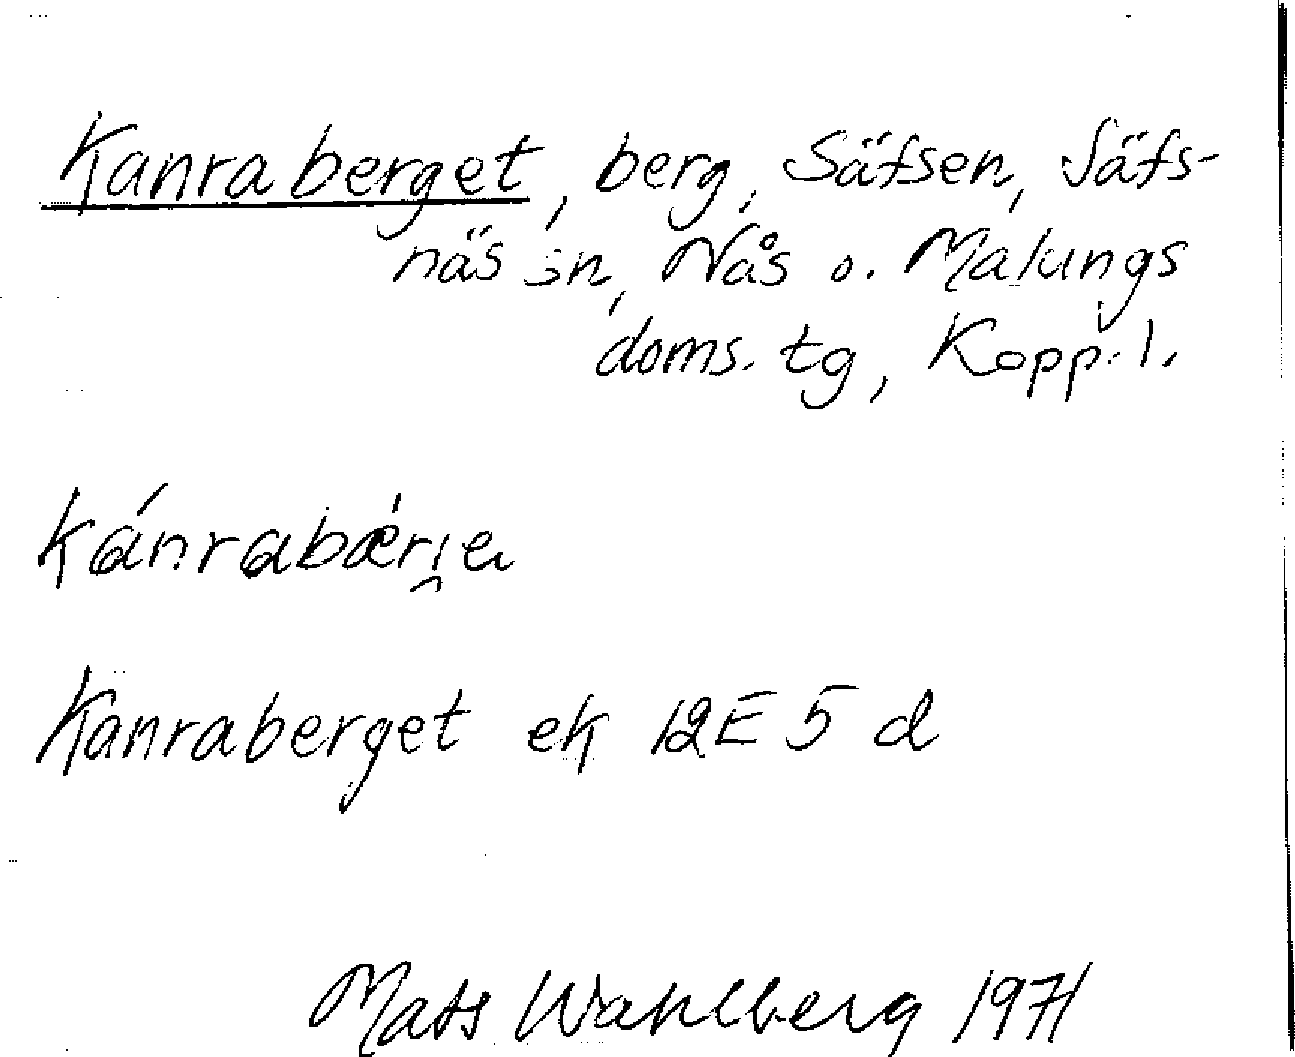 Kanraberget, berg, Säfsen, Säfs-
näs sn, Nås o. Malungs
doms. tg, Kopp. l.
Kanraberget ek 12E 5 d
Mats Wahlberg 1971